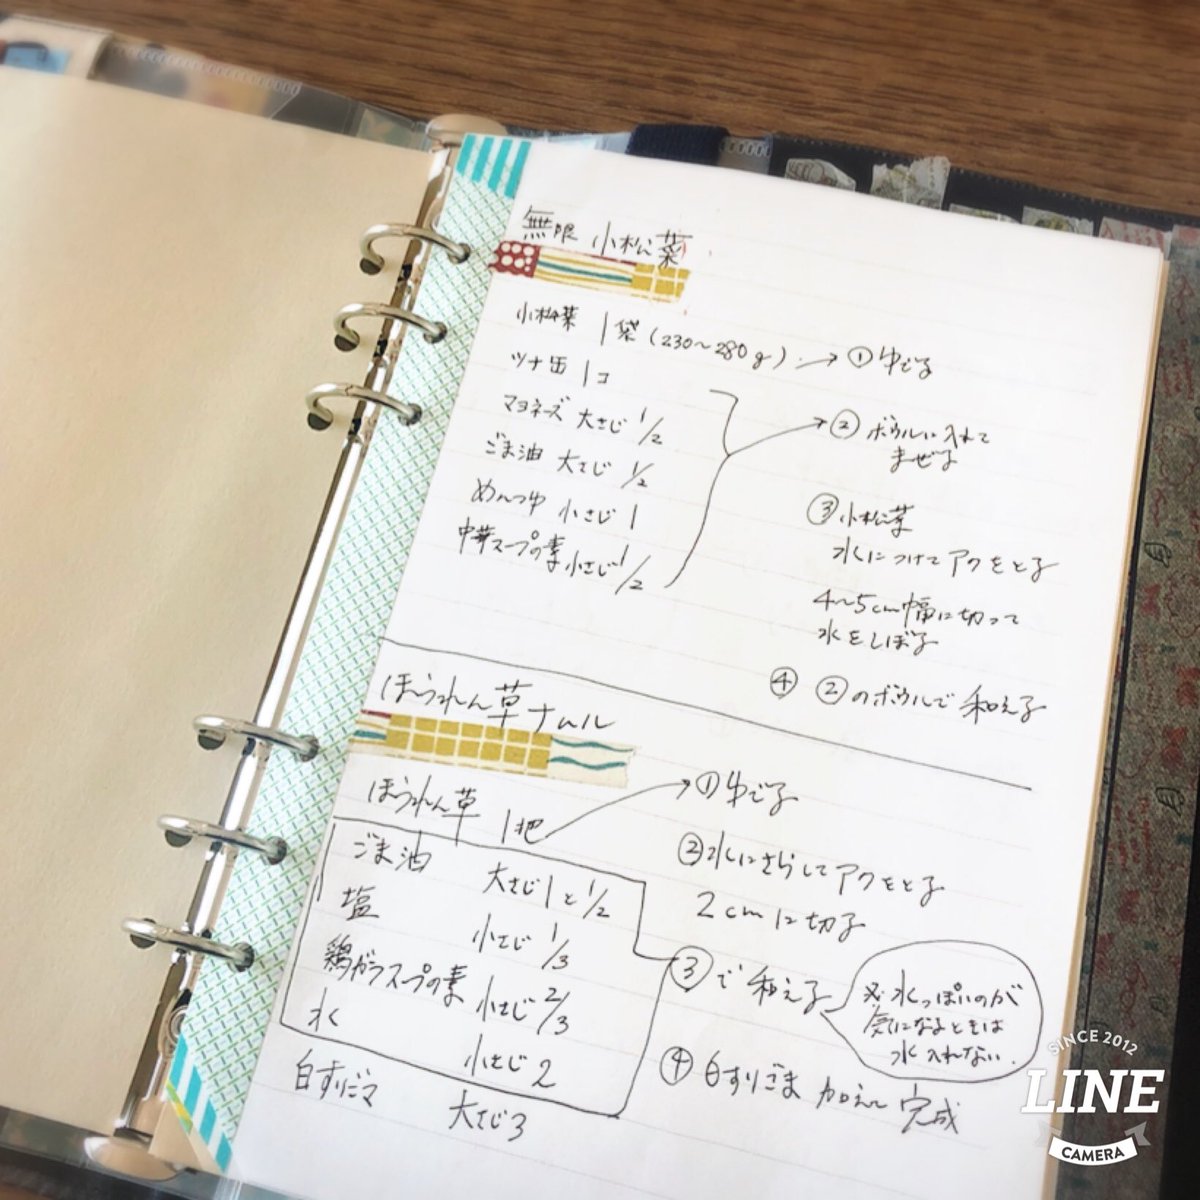 無限 小松菜
小松菜 1袋(230〜280g) → ① ゆでる
ツナ缶 1コ
マヨネーズ 大さじ 1/2
ごま油 大さじ 1/2
めんつゆ 小さじ 1
中華スープの素 小さじ 1/2
② ボウルに入れて
まぜる
③ 小松菜
水につけてアクをとる
4〜5cm幅に切って
水をしぼる
④ ②のボウルで 和える
ほうれん草ナムル
ほうれん草 1把
ごま油 大さじ1と1/2
塩 小さじ 1/3
鶏ガラスープの素 小さじ 2/3
水 小さじ 2
白すりごマ 大さじ3
① ゆでる
② 水にさらしてアクをとる
2cmに切る
③ で 和える
※ 水っぽいのが
気になるときは
水 入れない.
④ 白すりごま 加えて 完成
月
月
SINCE 2012
LINE
CAMERA